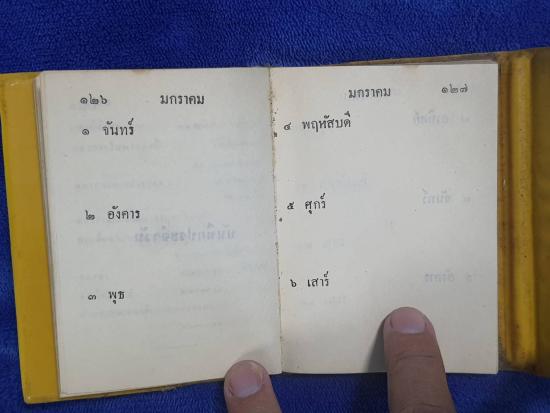 ๑๒๖ มกราคม
๑ จันทร์
๒ อังคาร
๓ พุธ
มกราคม ๑๒๗
๔ พฤหัสบดี
๕ ศุกร์
๖ เสาร์